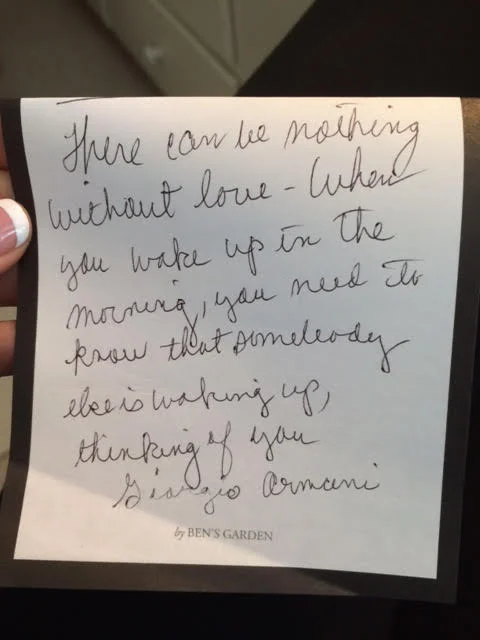 There can be nothing
without love - When
you wake up in the
morning, you need to
know that somebody
else is waking up,
thinking of you
Giorgio Armani
by BEN'S GARDEN